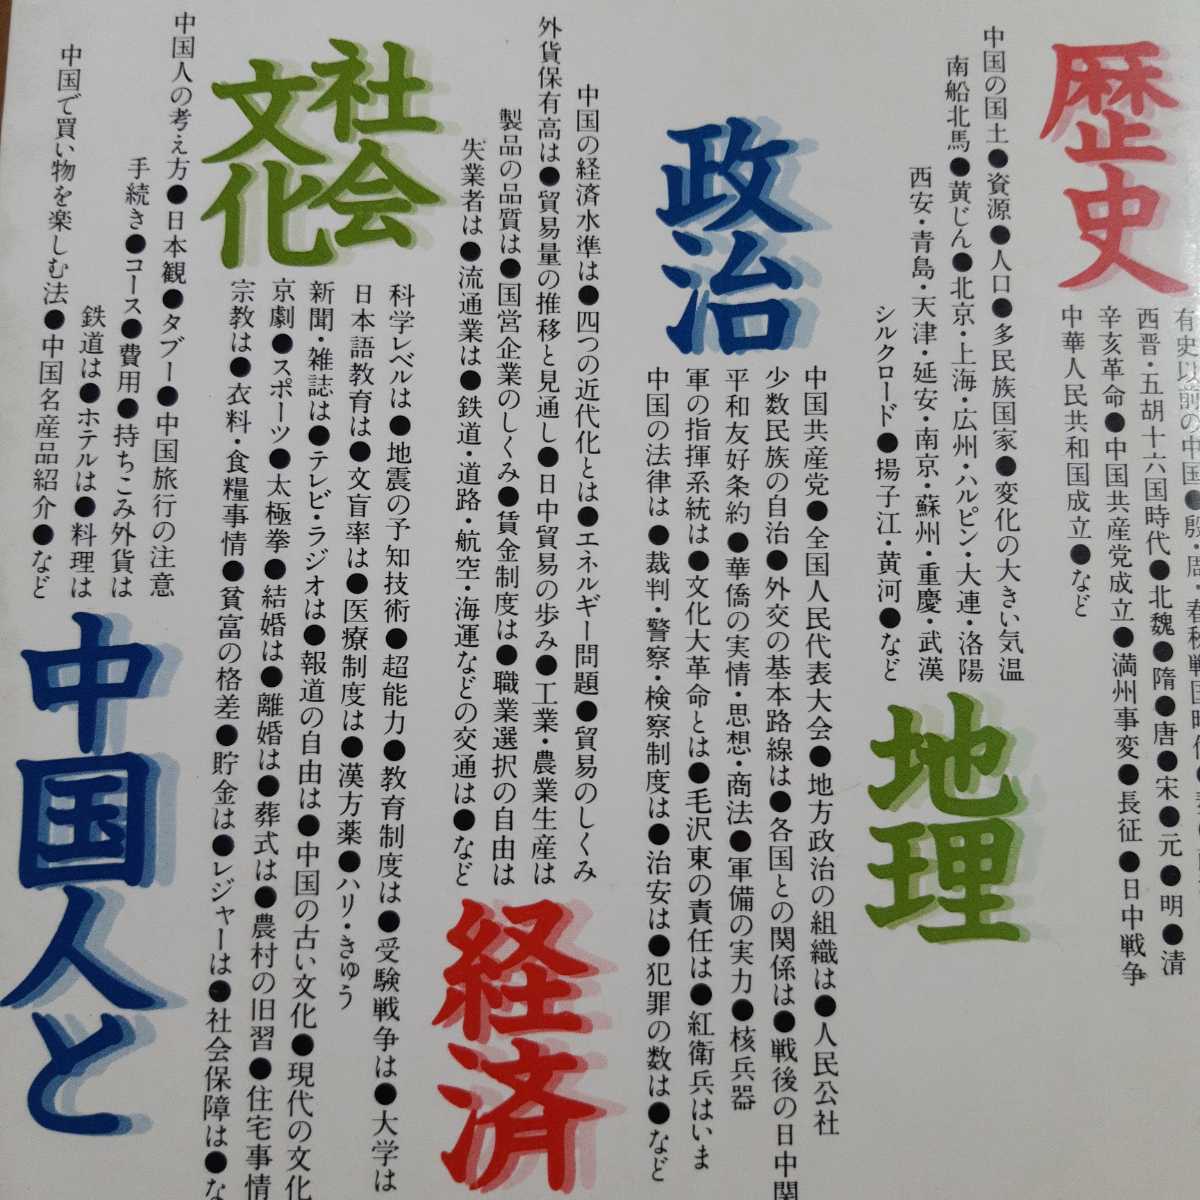 歴史
有史以前の中国●殷・周・春秋戦国時代
西晋・五胡十六国時代●北魏●隋●唐●宋●元●明●清
辛亥革命●中国共産党成立●満州事変●長征●日中戦争
中華人民共和国成立●など
地理
中国の国土●資源●人口●多民族国家●変化の大きい気温
南船北馬●黄じん●北京・上海・広州・ハルピン・大連・洛陽
西安・青島・天津・延安・南京・蘇州・重慶・武漢
シルクロード●揚子江・黄河●など
政治
中国共産党●全国人民代表大会●地方政治の組織は●人民公社
少数民族の自治●外交の基本路線は●各国との関係は●戦後の日中関
平和友好条約●華僑の実情・思想・商法●軍備の実力●核兵器
軍の指揮系統は●文化大革命とは●毛沢東の責任は●紅衛兵はいま
中国の法律は●裁判・警察・検察制度は●治安は●犯罪の数は●など
経済
中国の経済水準は●四つの近代化とは●エネルギー問題●貿易のしくみ
外貨保有高は●貿易量の推移と見通し●日中貿易の歩み●工業・農業生産は
製品の品質は●国営企業のしくみ●賃金制度は●職業選択の自由は
失業者は●流通業は●鉄道・道路・航空・海運などの交通は●など
社会
文化
科学レベルは●地震の予知技術●超能力●教育制度は●受験戦争は●大学は
日本語教育は●文盲率は●医療制度は●漢方薬●ハリ・きゅう
新聞・雑誌は●テレビ・ラジオは●報道の自由は●中国の古い文化●現代の文化
京劇●スポーツ●太極拳●結婚は●離婚は●葬式は●農村の旧習●住宅事情
宗教は●衣料・食糧事情●貧富の格差●貯金は●レジャーは●社会保障は●な
中国人と
中国人の考え方●日本観●タブー●中国旅行の注意
手続き●コース●費用●持ちこみ外貨は
鉄道は●ホテルは●料理は
中国で買い物を楽しむ法●中国名産品紹介●など